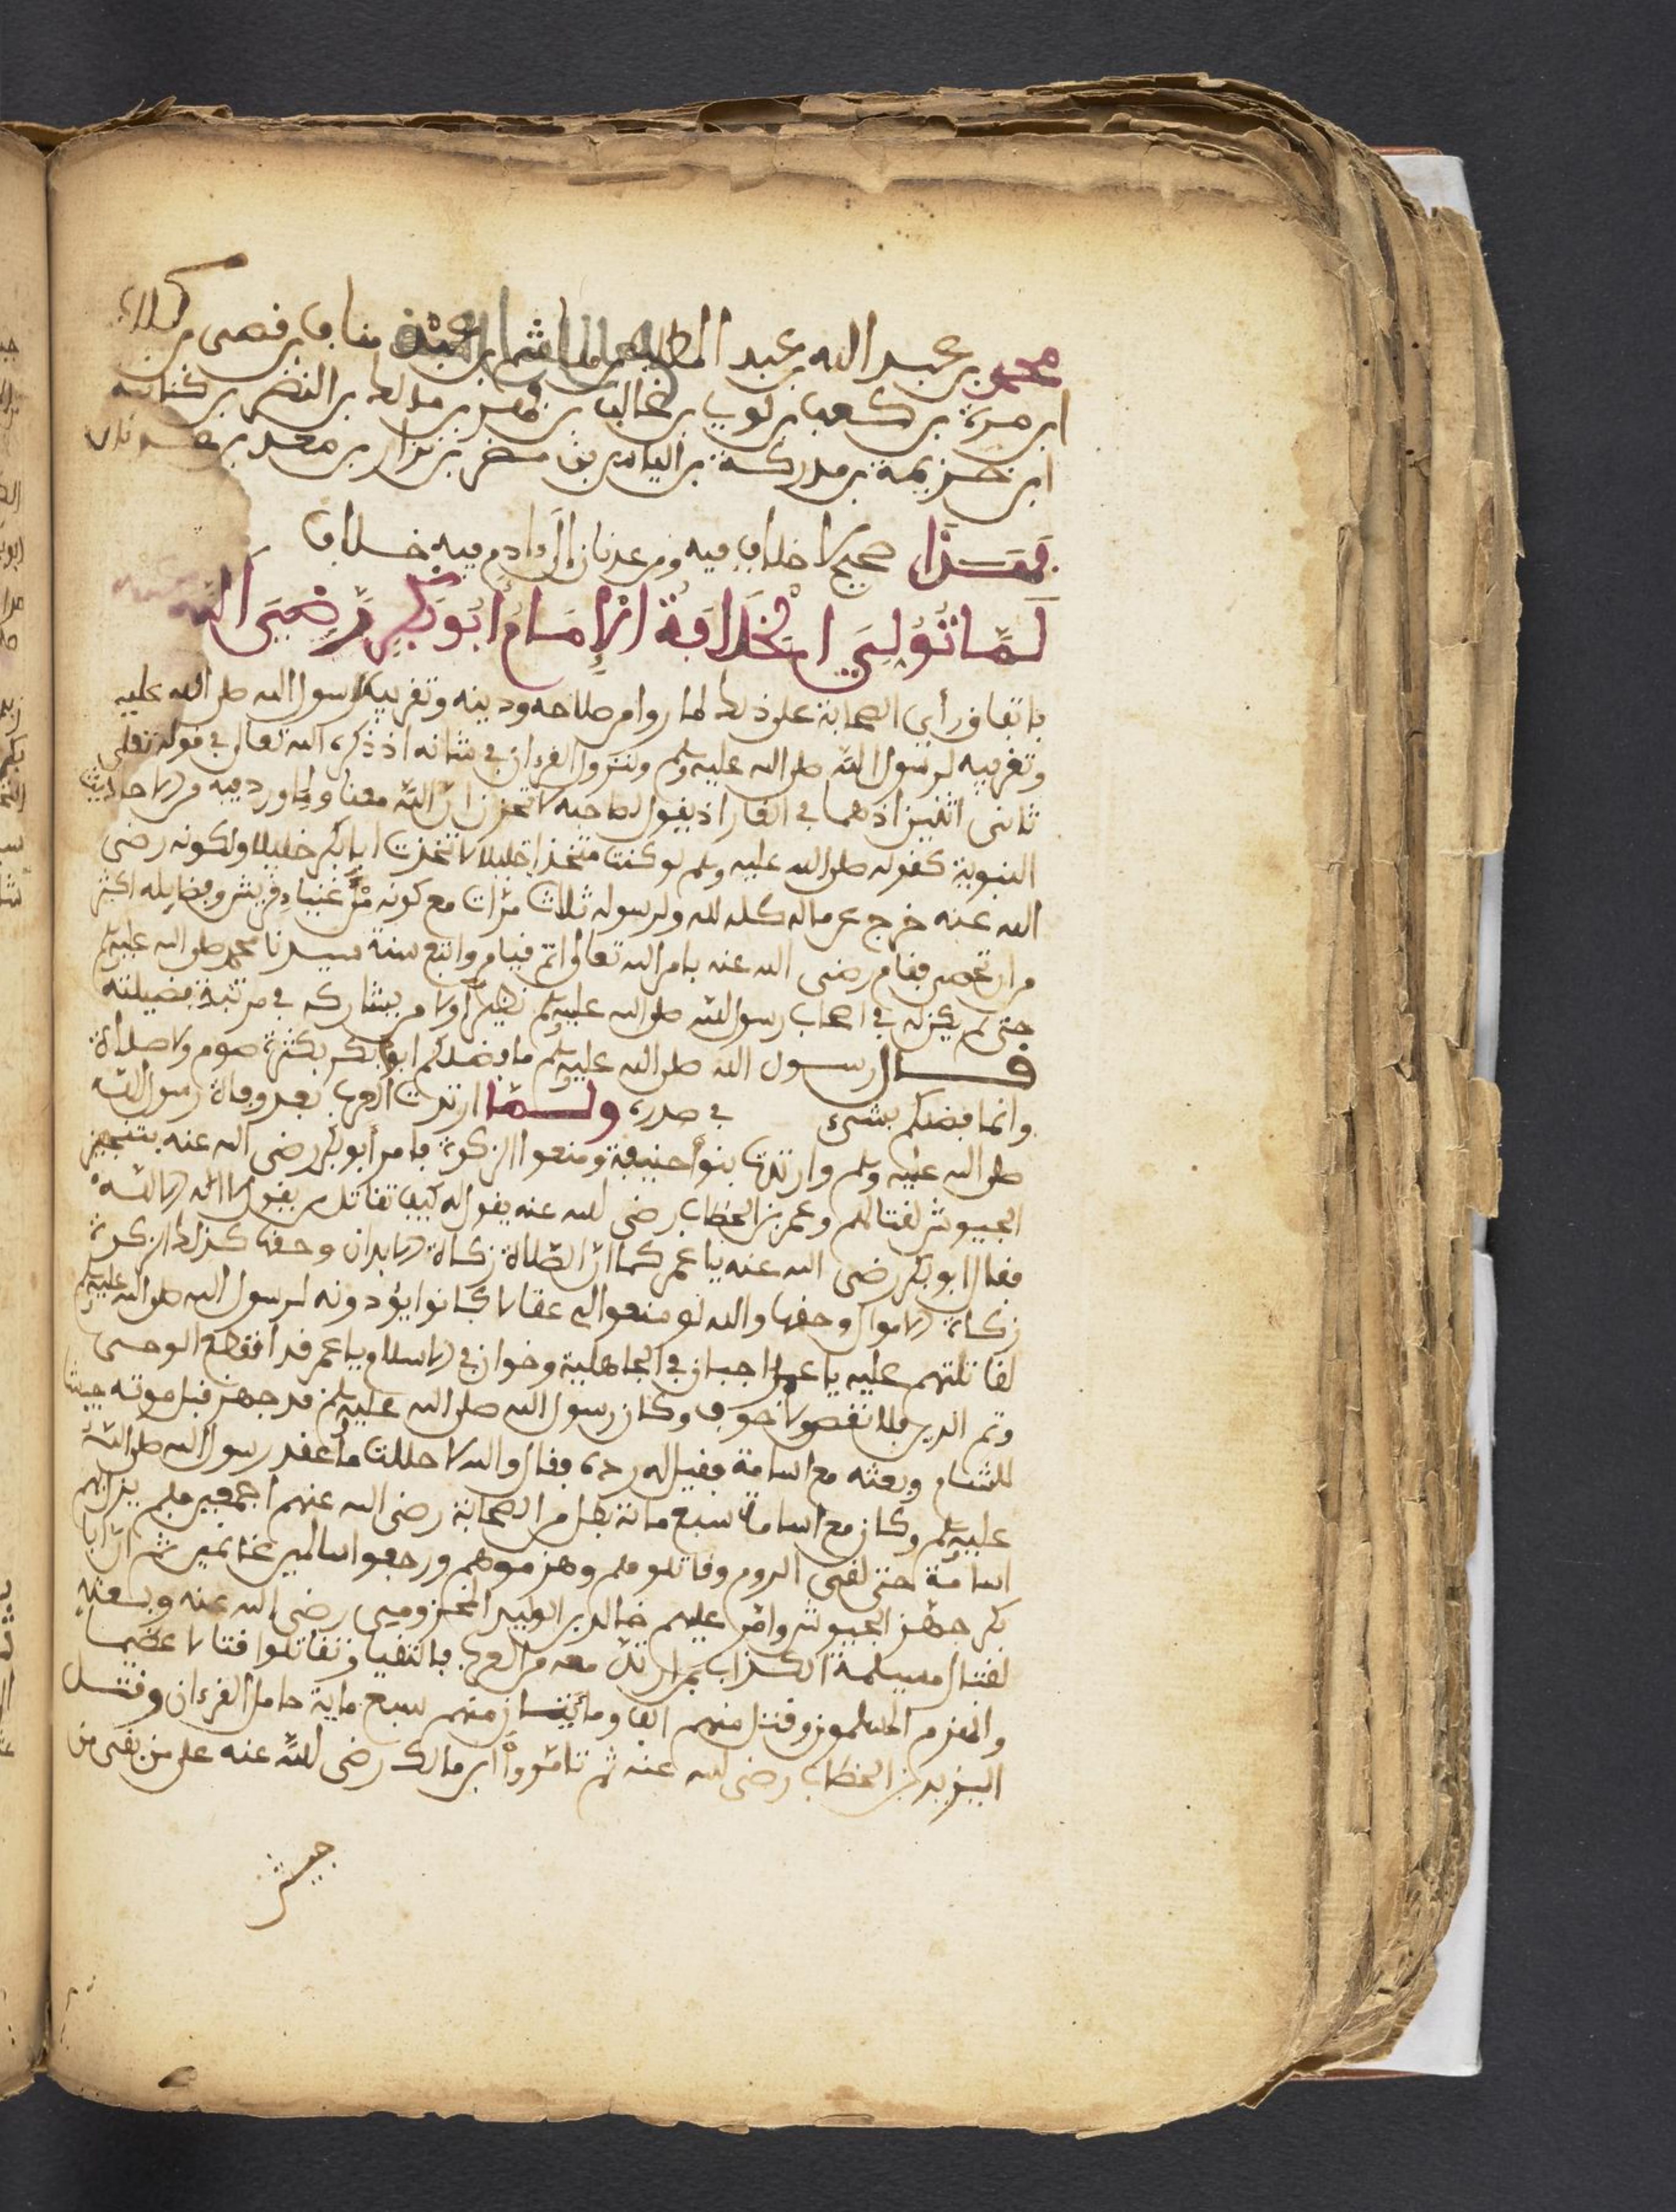 محمد بن عبد الله بن عبد المطلب بن هاشم بن عبد مناف بن قصي بن كلاب
ابن مرة بن كعب بن لوي بن غالب بن فهر بن مالك بن النضر بن كنانة
ابن خزيمة بن مدركة بن الياس بن مضر بن نزار بن معد بن عدنان
فهذا صحيح لا خلاف فيه ومن عدنان إلى ءادم فيه خلاف
لَمَّا تُوُلِيَ الْخَلَافَةُ الْإِمَامُ أَبُو بَكْرٍ رَّضِيَ اللَّه عنه
باتفاق رأي الصحابة على ذلك لما روا من صلاحه ودينه وتقريبه لرسول الله صلى الله عليه
وتقريبه لرسول الله صلى الله عليه وسلم ونزول القرءان في شانه اذ ذكره الله تعالى في قوله تعلى
ثاني اثنين اذ هما في الغار اذ يقول لصاحبه لا تحزن ان الله معنا ولما ورد فيه من الاحاديث
النبوية كقوله صلى الله عليه وسلم لو كنت متخذا خليلا لاتخذت ابا بكر خليلا ولكونه رضي
الله عنه خرج عن ماله كله لله ولرسوله ثلاث مرّات مع كونه من أغنياء قريش وفضايله اكثر
من ان تحصى فقام رضي الله عنه بامر الله تعالى اتم قيام واتبع سنة سيدنا محمد صلى الله عليه وسلم
حتى لم يكن له في اصحاب رسول الله صلى الله عليه وسلم نظير أولا من يشاركه في مرتبة فضيلته
قال رسول الله صلى الله عليه وسلم ما فضلكم ابو بكر بكثرة صوم ولا صلاة
وانما فضلكم بشيء في صدره ولمّا ارتدت العرب بعد وفاة رسول الله
صلى الله عليه وسلم وارتدت بنوا حنيفة ومنعوا الزكوة فامر أبو بكر رضي الله عنه بتنجيز
الجيوش لقتالهم وعمر بن الخطاب رضي الله عنه يقول له كيف تقاتل من يقول لا اله الا الله
فقال ابو بكر رضي الله عنه يا عمر كما انّ الصّلاة زكاة الابدان وحقها كذلك الزكوة
زكاة الاموال وحقها والله لو منعوا لي عقالا كانوا يؤدونه لرسول الله صلى الله عليه وسلم
لقاتلتهم عليه يا عمر اجبان في الجاهلية وخوان في الاسلام يا عمر قد انقطع الوحي
وتم الدين فلا نقص ولا خوف وكان رسول الله صلى الله عليه وسلم قد جهز قبل موته جيشا
للشام وبعثه مع اسامة فقيل له رده فقال والله لا حللت ما عقد رسول الله صلى الله
عليه وسلم وكان مع اسامة سبع مائة بطل من الصحابة رضي الله عنهم اجمعين فلم يزل بهم
اسامة حتى لقي الروم وقاتلوهم وهزموهم ورجعوا سالمين غانمين ثم انّ ابا
بكر جهّز الجيوش وامّر عليهم خالد بن الوليد المخزومي رضي الله عنه وبعثه
لقتال مسيلمة الكذاب بمن ارتدّ معه من العرب فالتقيا وتقاتلوا قتالا عظيما
وانهزم المسلمون وقتل منهم الف ومائتان منهم سبع ماية حامل القرءان وقتل
اليزيد بن الخطاب رضي الله عنه ثم تامّرواْ ابن مالك رضي الله عنه على من بقى من
جيش